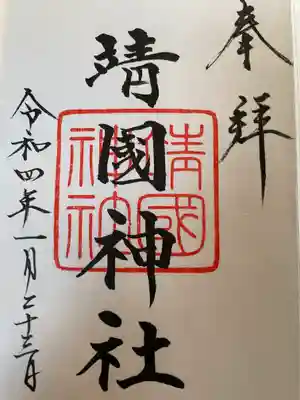 奉拝
靖國神社
靖國
神社
令和四年一月二十三日